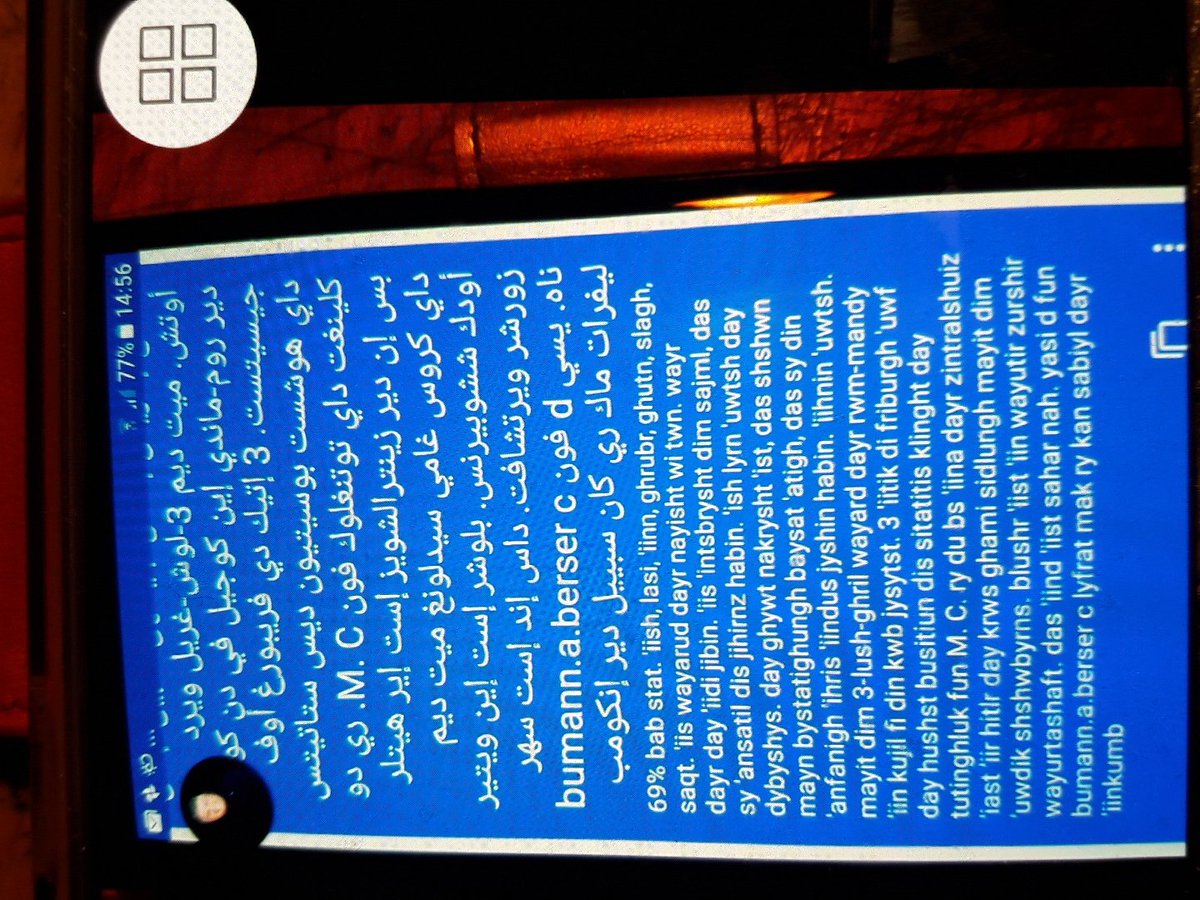 77% 14:56
أوتش. ميت ديم 3-لوش-غريل ويرد
دير روم-ماندي إين كوجيل في دن كو
جيسيتست. 3 إتيك دي فريبورغ أوف
داي هوشست بوسيتيون ديس ستاتيتس
كلينغت داي توتنغلوك فون M. C. ري دو
بس إن دير زينترالشويز إست إير هيتلر
داي كروس غامي سيدلونغ ميت ديم
أودك ششوبيرنس. بلوشر إست إين ويتير
زورشر ويرتشافت. داس إند إست سهر
ناه. يسي d فون bumann.a.berser c
ليفرات ماك ري كان سبييل دير إنكومب
69% bab stat. 'iish, lasi, 'iinn, ghrubr, ghutn, slagh,
saqt. 'iis wayarud dayr nayisht wi twn. wayr
dayr day 'iidi jibln. 'iis 'intsbrysht dim sajml, das
sy 'ansatil dis jihirnz habin. 'ish lyrn 'uwtsh day
dybyshys. day ghywt nakrysht 'ist, das shshwn
mayn bystatighungh baysat 'atigh, das sy din
'anfanigh 'ihris 'iindus jyshin habin. 'iihnin 'uwtsh.
mayit dim 3-lush-ghril wayard dayr rwm-mandy
'iin kujil fi din kwb jysytst. 3 'iitik di friburgh 'uwf
day hushst busitiun dis sitatitis klinght day
tutinghluk fun M. C. ry du bs 'iina dayr zintralshuiz
'iast 'iir hitlr day krws ghami sidlungh mayit dim
'uwdik shshwbyrns. blushr 'iist 'iin wayutir zurshir
wayurtashaft. das 'iind 'iist sahar nah. yasi d fun
bumann.a.berser c lyfrat mak ry kan sabiyl dayr
'iinkumb